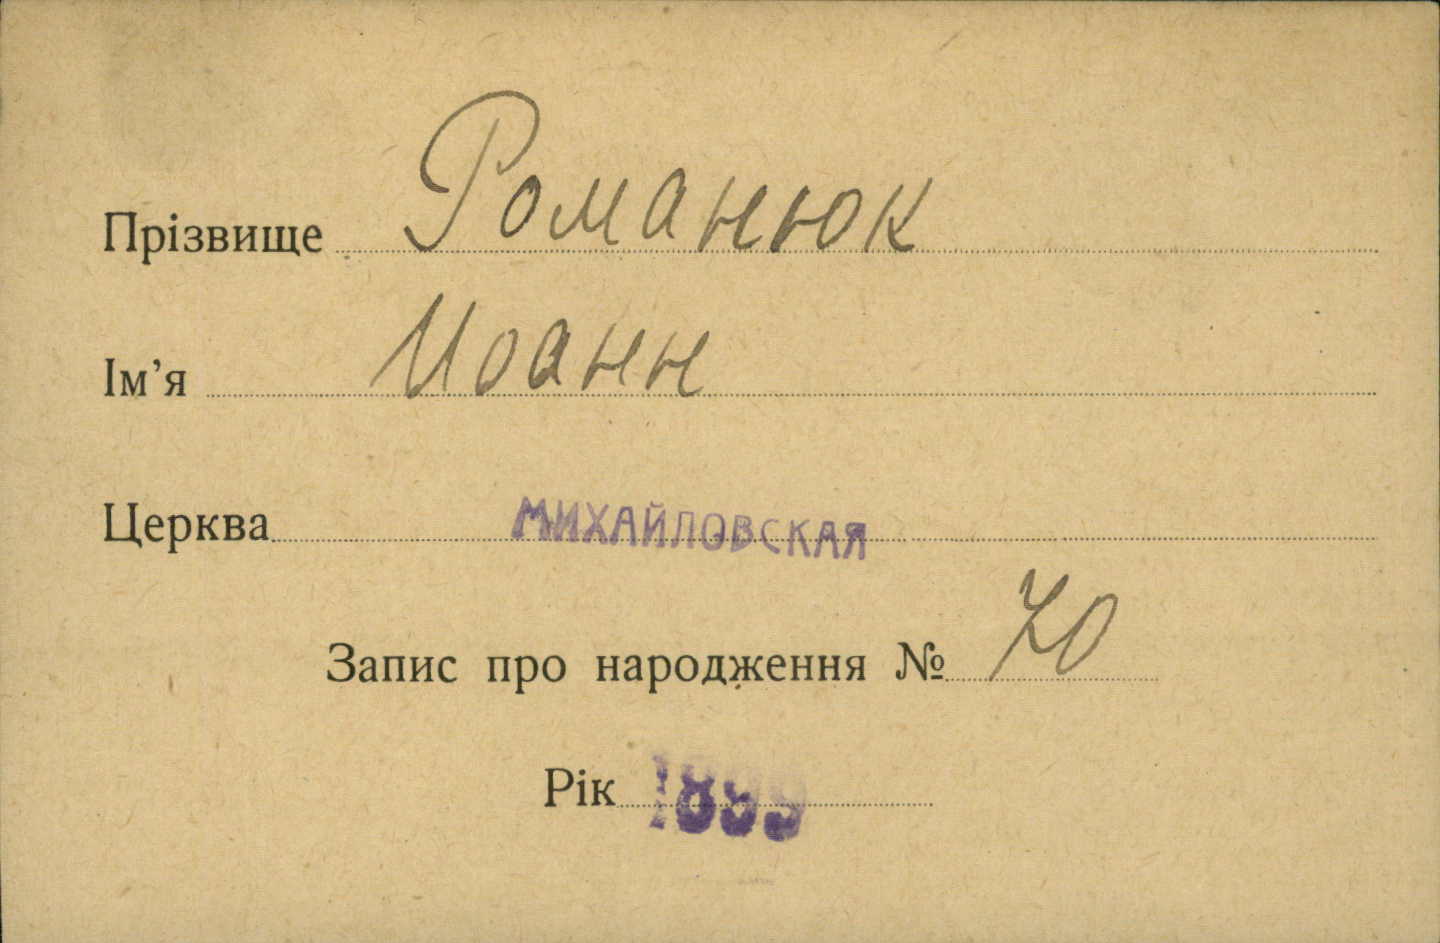 Прізвище Романюк
Ім’я Иоанн
Церква МИХАЙЛОВСКАЯ
Запис про народження № 70
Рік 1899